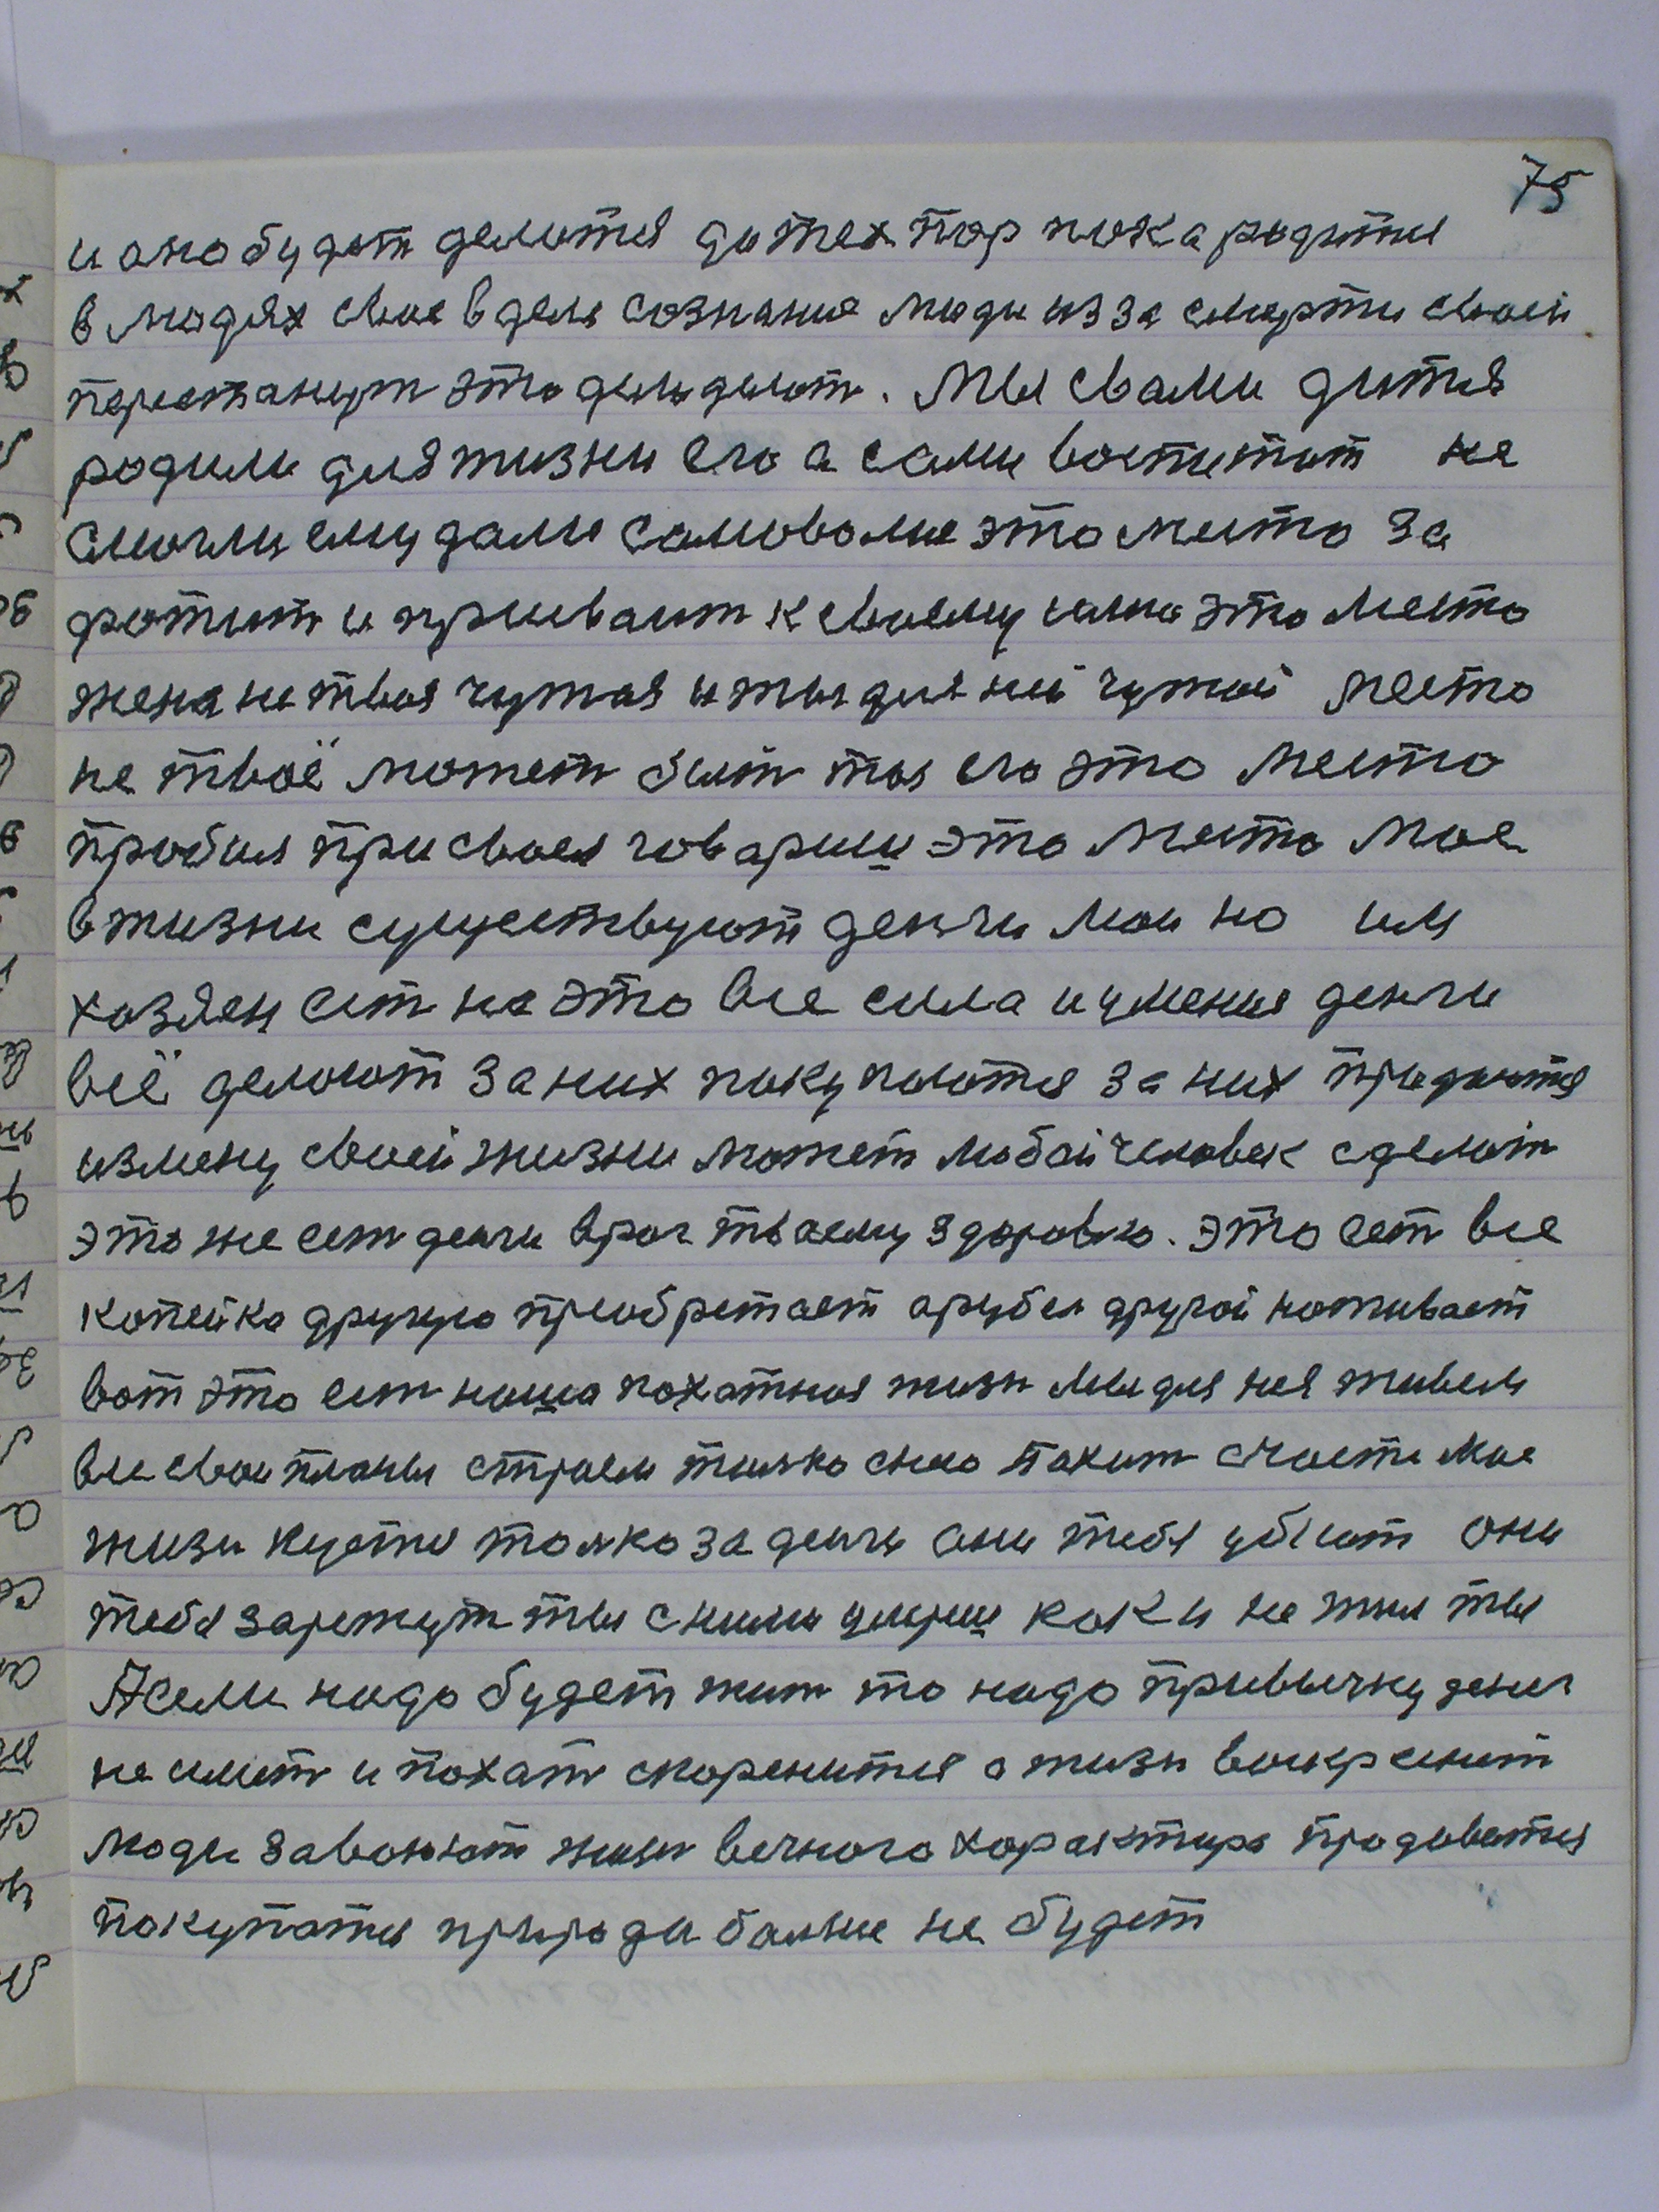 75
и оно будет делатся дотех пор пока родится
в людях свое в деле сознание люди из за смерти своей
перестанут это дело делат. Мы свами дитя
родили для жизни его а сами воспитат не
смогли ему дали самоволие это место за
фотит и присваит к своему имю это место
жена не твоя чужая и ты для ней чужой место
не твоё может быт ты его это место
пробил присвоел говариш это место мое
в жизни существуют денги мои но им
хозяен ест на это все сила и умения денги
всё делают за них покупаются за них продаются
измену своей жизни может любой человек сделат
это же ест денги враг твоему здоровю. это ест все
копейка другую преобретает а рубел другой наживает
вот это ест наша похатная жизн мы для нея живем
все свои планы строем толко сило пахит счастя мое
жизн купится толко за денги они тебя убют они
тебя зарежут ты с ними умриш как и не жил ты
А если надо будет жит то надо привычку денег
не имет и похат скоренится а жизн воскреснит
люди завоюют жизн вечного характера продаватся
покупатся природа болше не будет